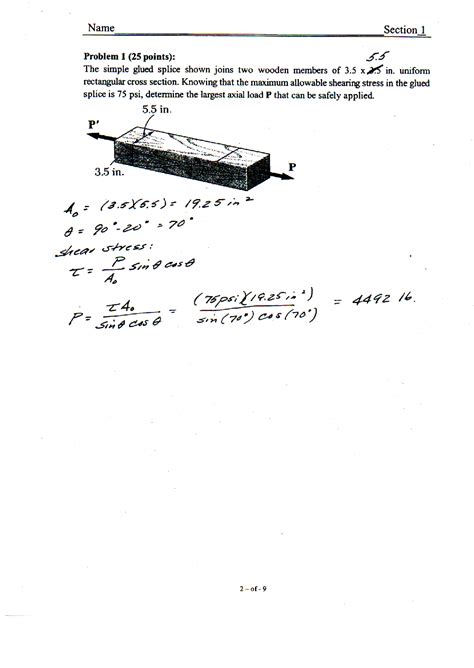 Name Section 1
Problem 1 (25 points): 5.5
The simple glued splice shown joins two wooden members of 3.5 x in. uniform
rectangular cross section. Knowing that the maximum allowable shearing stress in the glued
splice is 75 psi, determine the largest axial load P that can be safely applied.
5.5 in.
P'
P
3.5 in.
A₀ = (3.5)(5.5) = 19.25 in²
θ = 90° - 20° = 70°
shear stress:
τ = P/A₀ sin θ cos θ
P = τA₀/(sin θ cos θ) = (75psi)(19.25 in²)/(sin(70°) cos(70°)) = 4492 lb.
2 - of - 9